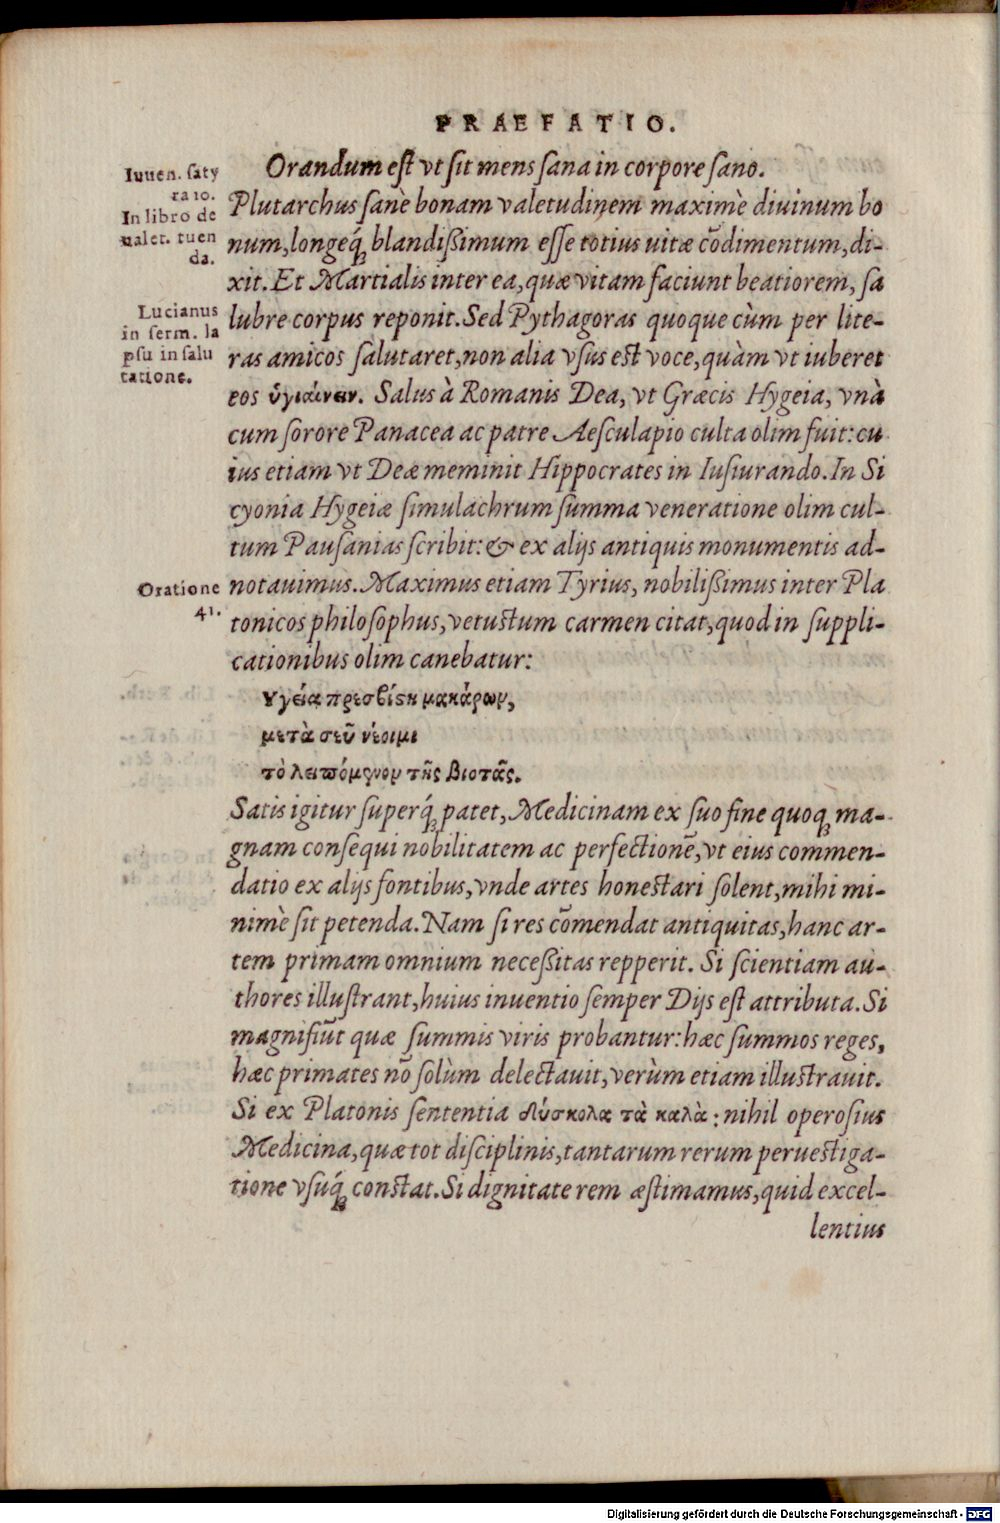 PRAEFATIO.
Orandum eſt vt ſit mens ſana in corpore ſano.
Iuuen. ſaty
ra 10.
In libro de
ualet. tuen
da.
Plutarchus ſanè bonam valetudinem maximè diuinum bo
num, longeq́ꝫ blandiſſimum eſſe totius uitæ cōdimentum, di-
xit. Et Martialis inter ea, quæ vitam faciunt beatiorem, ſa
Lucianus
in ſerm. la
pſu in ſalu
tatione.
lubre corpus reponit. Sed Pythagoras quoque cùm per lite-
ras amicos ſalutaret, non alia vſus est voce, quàm vt iuberet
eos ὑγιαίνειν. Salus à Romanis Dea, vt Græcis Hygeia, vnà
cum ſorore Panacea ac patre Aeſculapio culta olim fuit: cu
ius etiam vt Deæ meminit Hippocrates in Iuſiurando. In Si
cyonia Hygeiæ ſimulachrum ſumma veneratione olim cul-
tum Pauſanias ſcribit: & ex alijs antiquis monumentis ad-
Oratione
41.
notauimus. Maximus etiam Tyrius, nobiliſſimus inter Pla
tonicos philoſophus, vetustum carmen citat, quod in ſuppli-
cationibus olim canebatur:
Υγεία πρεσβίϛη μακάρων,
μετὰ σεῦ νέοιμι
τὸ λειπόμενον τῆς βιοτᾶς.
Satis igitur ſuperq́ꝫ patet, Medicinam ex ſuo fine quoqꝫ ma-
gnam conſequi nobilitatem ac perfectionē, vt eius commen-
datio ex alijs fontibus, vnde artes honestari ſolent, mihi mi-
nimè ſit petenda. Nam ſi res cōmendat antiquitas, hanc ar-
tem primam omnium neceſſitas repperit. Si ſcientiam au-
thores illuſtrant, huius inuentio ſemper Dijs eſt attributa. Si
magnifiūt quæ ſummis viris probantur: hæc ſummos reges,
hæc primates nō ſolùm delectauit, verùm etiam illustrauit.
Si ex Platonis ſententia δύσκολα τὰ καλὰ: nihil operoſius
Medicina, quæ tot diſciplinis, tantarum rerum peruestiga-
tione vſuq́ꝫ constat. Si dignitate rem æſtimamus, quid excel-
lentius
Digitalisierung gefördert durch die Deutsche Forschungsgemeinschaft - DFG